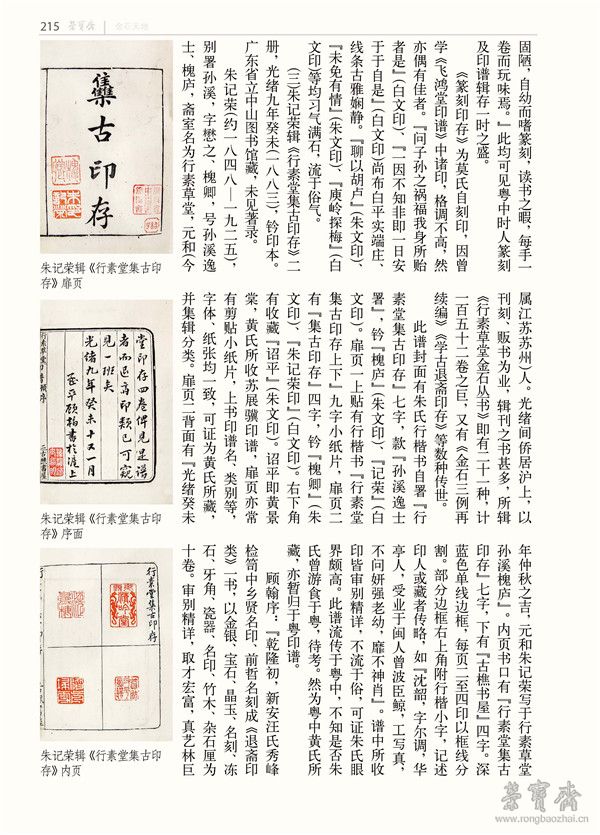 215 荣宝斋 金石天地
固陋，自幼而嗜篆刻，读书之暇，每手一
卷而玩味焉。』此均可见粤中时人篆刻
及印谱辑存一时之盛。
《篆刻印存》为莫氏自刻印，因曾
学《飞鸿堂印谱》中诸印，格调不高，然
亦偶有佳者。『问子孙之祸福我身所贻
者是』（白文印）、『一因不知非即一日安
于于自是』（白文印）尚布白平实端庄、
线条古雅娴静。『聊以胡卢』（朱文印）、
『未免有情』（朱文印）、『庾岭探梅』（白
文印）等均习气满石，流于俗气。
（三）朱记荣辑《行素堂集古印存》二
册，光绪年癸未（一八八三），钤印本。
广东省立中山图书馆藏，未见著录。
朱记荣（约一八四八—一九二五），
别署孙溪，字懋之、槐卿，号孙溪逸
士、槐庐，斋室名为行素草堂，元和（今
集古印存
朱记荣辑《行素堂集古印
存》扉页
属江苏苏州）人。光绪间侨居沪上，以
刊刻、贩书为业，辑刊之书甚多，所辑
《行素草堂金石丛书》即有二十一种，计
一百五十二卷之巨，又有《金石三例再
续编》《学古退斋印存》等数种传世。
此谱封面有朱氏行楷书自署『行
素堂集古印存』七字，款『孙溪逸士
署』，钤『槐庐』（朱文印）、『记荣』（白
文印）。扉页一上贴有行楷书『行素堂
集古印存上下』九字小纸片，扉页二
有『集古印存』四字，钤『槐卿』（朱
文印）、『朱记荣印』（白文印）。右下角
有收藏『诏平』（朱文印）。诏平即黄景
棠，黄氏所收苏展骥印谱，扉页亦常
有剪贴小纸片，上书印谱名、类别等，
字体、纸张均一致，可证为黄氏所藏，
并集辑分类。扉页二背面有『光绪癸未
堂印存四卷俾见是谱
者而退斋印类已可窥
见一班矣
光绪九年癸未十又一月
朱记荣辑《行素堂集古印
存》序面
年仲秋之吉，元和朱记荣写于行素草堂
孙溪槐庐』。内页书口有『行素堂集古
印存』七字，下有『古樵书屋』四字。深
蓝色单线边框，每页二至四印以框线分
割。部分边框右上角附行楷小字，记述
印人或藏者传略，如『沈韶，字尔调，华
亭人，受业于闽人曾波臣鲸，工写真，
不问妍强老幼，靡不神肖』。谱中所收
印皆审别精详，不流于俗，可证朱氏眼
界颇高。此谱流传于粤中，不知是否朱
氏曾游食于粤，待考。然为粤中黄氏所
藏，亦暂归于粤印谱。
顾翰序：『乾隆初，新安汪氏秀峰
检笥中乡贤名印、前哲名刻成《退斋印
类》一书，以金银、宝石、晶玉、名刻、冻
石、牙角、瓷器、名印、竹木、杂石厘为
十卷。审别精详，取才宏富，真艺林巨
行素堂集古印存
朱记荣辑《行素堂集古印
存》内页
荣宝斋
www.rongbaozhai.cn